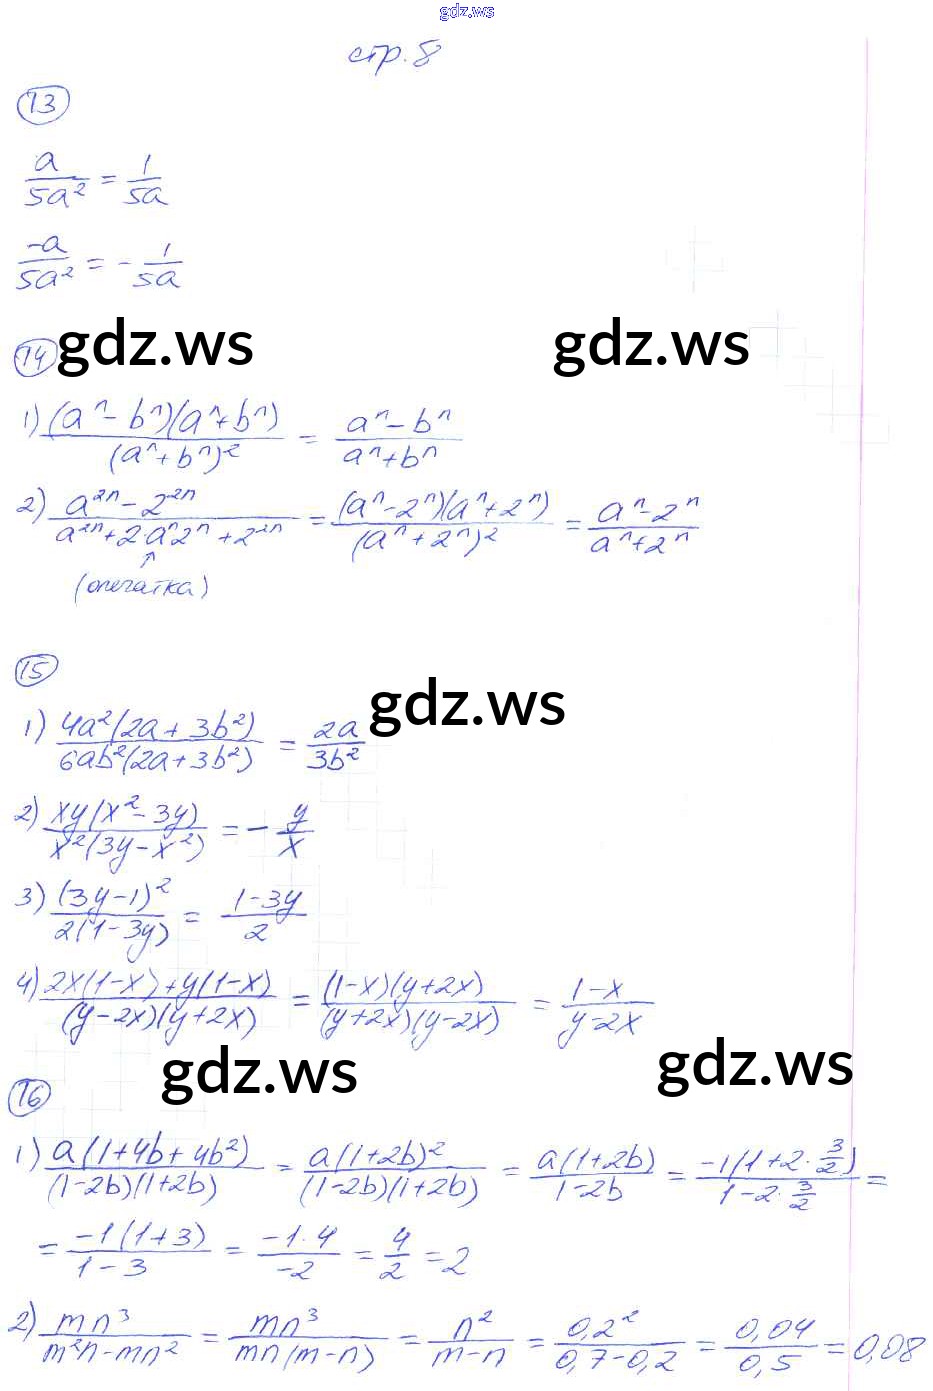 gdz.ws
стр. 8
13
a/5a² = 1/5a
-a/5a² = - 1/5a
gdz.ws gdz.ws
14
1) (aⁿ - bⁿ)(aⁿ + bⁿ)/(aⁿ + bⁿ)² = aⁿ - bⁿ/aⁿ + bⁿ
2) a²ⁿ - 2²ⁿ/a²ⁿ + 2·aⁿ2ⁿ + 2²ⁿ = (aⁿ - 2ⁿ)(aⁿ + 2ⁿ)/(aⁿ + 2ⁿ)² = aⁿ - 2ⁿ/aⁿ + 2ⁿ
↑
(опечатка)
15
gdz.ws
1) 4a²(2a + 3b²)/6ab²(2a + 3b²) = 2a/3b²
2) xy(x² - 3y)/x²(3y - x²) = - y/x
3) (3y - 1)²/2(1 - 3y) = 1 - 3y/2
4) 2x(1 - x) + y(1 - x)/(y - 2x)(y + 2x) = (1 - x)(y + 2x)/(y + 2x)(y - 2x) = 1 - x/y - 2x
gdz.ws gdz.ws
16
1) a(1 + 4b + 4b²)/(1 - 2b)(1 + 2b) = a(1 + 2b)²/(1 - 2b)(1 + 2b) = a(1 + 2b)/1 - 2b = -1(1 + 2·3/2)/1 - 2·3/2 =
= -1(1 + 3)/1 - 3 = -1·4/-2 = 4/2 = 2
2) mn³/m²n - mn² = mn³/mn(m - n) = n²/m - n = 0,2²/0,7 - 0,2 = 0,04/0,5 = 0,08